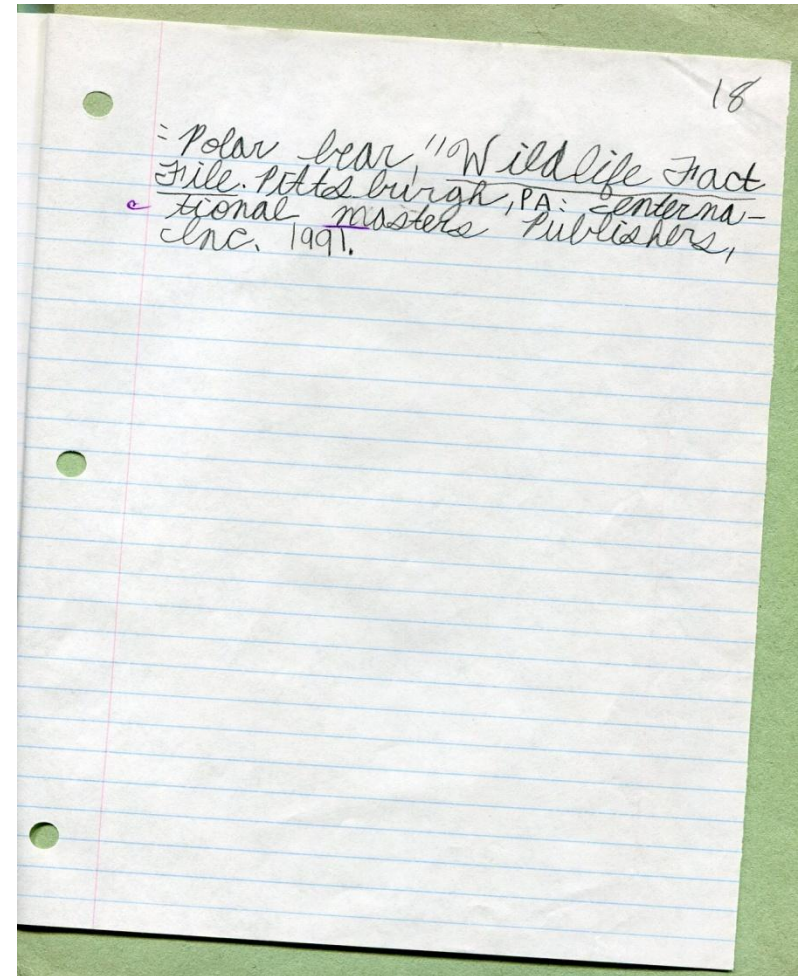 18
"Polar bear," Wildlife Fact
File. Pittsburgh, PA: Interna-
tional masters Publishers,
c
Inc. 1991.